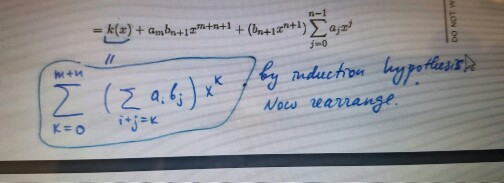 = k(x) + a_m b_{n+1} x^{m+n+1} + (b_{n+1} x^{n+1}) \sum_{j=0}^{n-1} a_j x^j
\sum_{k=0}^{m+n} ( \sum_{i+j=k} a_i b_j ) x^k by induction hypothesis.
Now rearrange.
DO NOT W